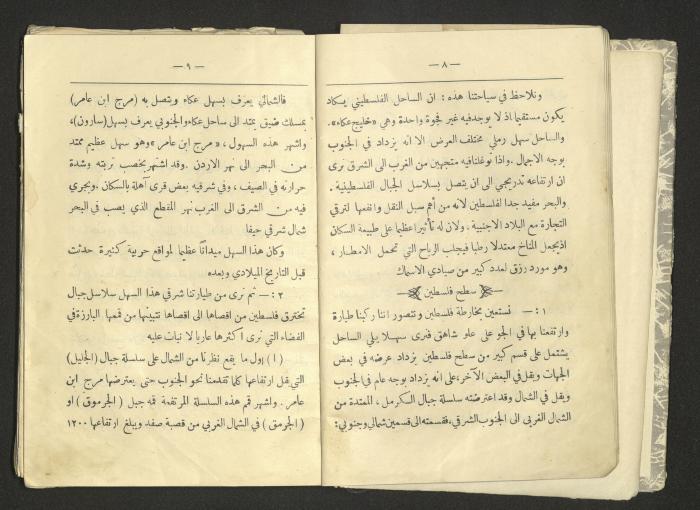 — ٨ —
ونلاحظ في سياحتنا هذه : ان الساحل الفلسطيني يكاد
يكون مستقيما اذ لا يوجد فيه غير فجوة واحدة وهي «خليج عكاء».
والساحل سهل رملي مختلف العرض الا انه يزداد في الجنوب
بوجه الاجمال . واذا توغلنا فيه متجهين من الغرب الى الشرق نرى
ان ارتفاعه تدريجي الى ان يتصل بسلاسل الجبال الفلسطينية .
والبحر مفيد جدا لفلسطين لانه من أهم سبل النقل وانفعها لترقي
التجارة مع البلاد الاجنبية . ولان له تأثيرا عظيما على طبيعة السكان
اذ يجعل المناخ معتدلا رطبا فيجلب الرياح التي تحمل الامطار ،
وهو مورد رزق لعدد كبير من صيادي الاسماك
سطح فلسطين
١ : — نستعين بخارطة فلسطين ونتصور اننا ركبنا طيارة
وارتفعنا بها في الجو على علو شاهق فنرى سهلا يلي الساحل
يشتمل على قسم كبير من سطح فلسطين يزداد عرضه في بعض
الجهات ويقل في البعض الآخر ، على انه يزداد بوجه عام في الجنوب
ويقل في الشمال وقد اعترضته سلسلة جبال الكرمل ، الممتدة من
الشمال الغربي الى الجنوب الشرقي ، فقسمته الى قسمين شمالي وجنوبي :
— ٩ —
فالشمالي يعرف بسهل عكاء ويتصل به (مرج ابن عامر)
بمسلك ضيق يمتد الى ساحل عكاء والجنوبي يعرف بسهل (سارون) ،
واشهر هذه السهول ، « مرج ابن عامر » وهو سهل عظيم ممتد
من البحر الى نهر الاردن . وقد اشتهر بخصب تربته وشدة
حرارته في الصيف ، وفي شرقيه بعض قرى آهلة بالسكان . ويجري
فيه من الشرق الى الغرب نهر المقطع الذي يصب في البحر
شمال شرقي حيفا
وكان هذا السهل ميدانا عظيما لمواقع حربية كثيرة حدثت
قبل التاريخ الميلادي وبعده
٢ : — ثم نرى من طيارتنا شرقي هذا السهل سلاسل جبال
تخترق فلسطين من اقصاها الى اقصاها نتبينها من قممها البارزة في
الفضاء التي نرى اكثرها عاريا لا نبات عليه
( ١ ) اول ما يقع نظرنا من الشمال على سلسلة جبال (الجليل)
التي يقل ارتفاعها كلما تقدمنا نحو الجنوب حتى يعترضها مرج ابن
عامر . واشهر قمم هذه السلسلة المرتفعة قمة جبل ( الجرموق ) او
( الجرمق ) في الشمال الغربي من قصبة صفد ويبلغ ارتفاعها ١٢٠٠